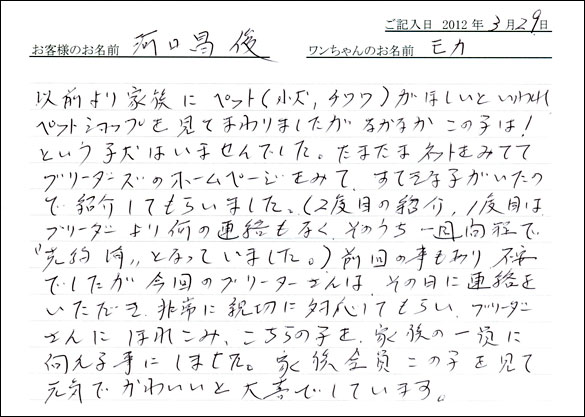 ご記入日 2012 年 3 月 29 日
お客様のお名前 河口昌俊 ワンちゃんのお名前 モカ
以前より家族にペット(小犬,チワワ)がほしいといわれ
ペットショップを見てまわりましたがなかなかこの子は!
という子犬はいませんでした。たまたまネットをみてて
ブリーダーズのホームページをみて、すてきな子がいたの
で紹介してもらいました。(2度目の紹介,1度目は
ブリーダーより何の連絡もなく、そのうち一週間程で
"売約済"となっていました。)前回の事もあり不安
でしたが今回のブリーダーさんは、その日に連絡を
いただき、非常に親切に対応してもらい、ブリーダー
さんにほれこみ、こちらの子を、家族の一員に
向え る事にしました。家族全員この子を見て
元気でかわいいと大喜びしています。